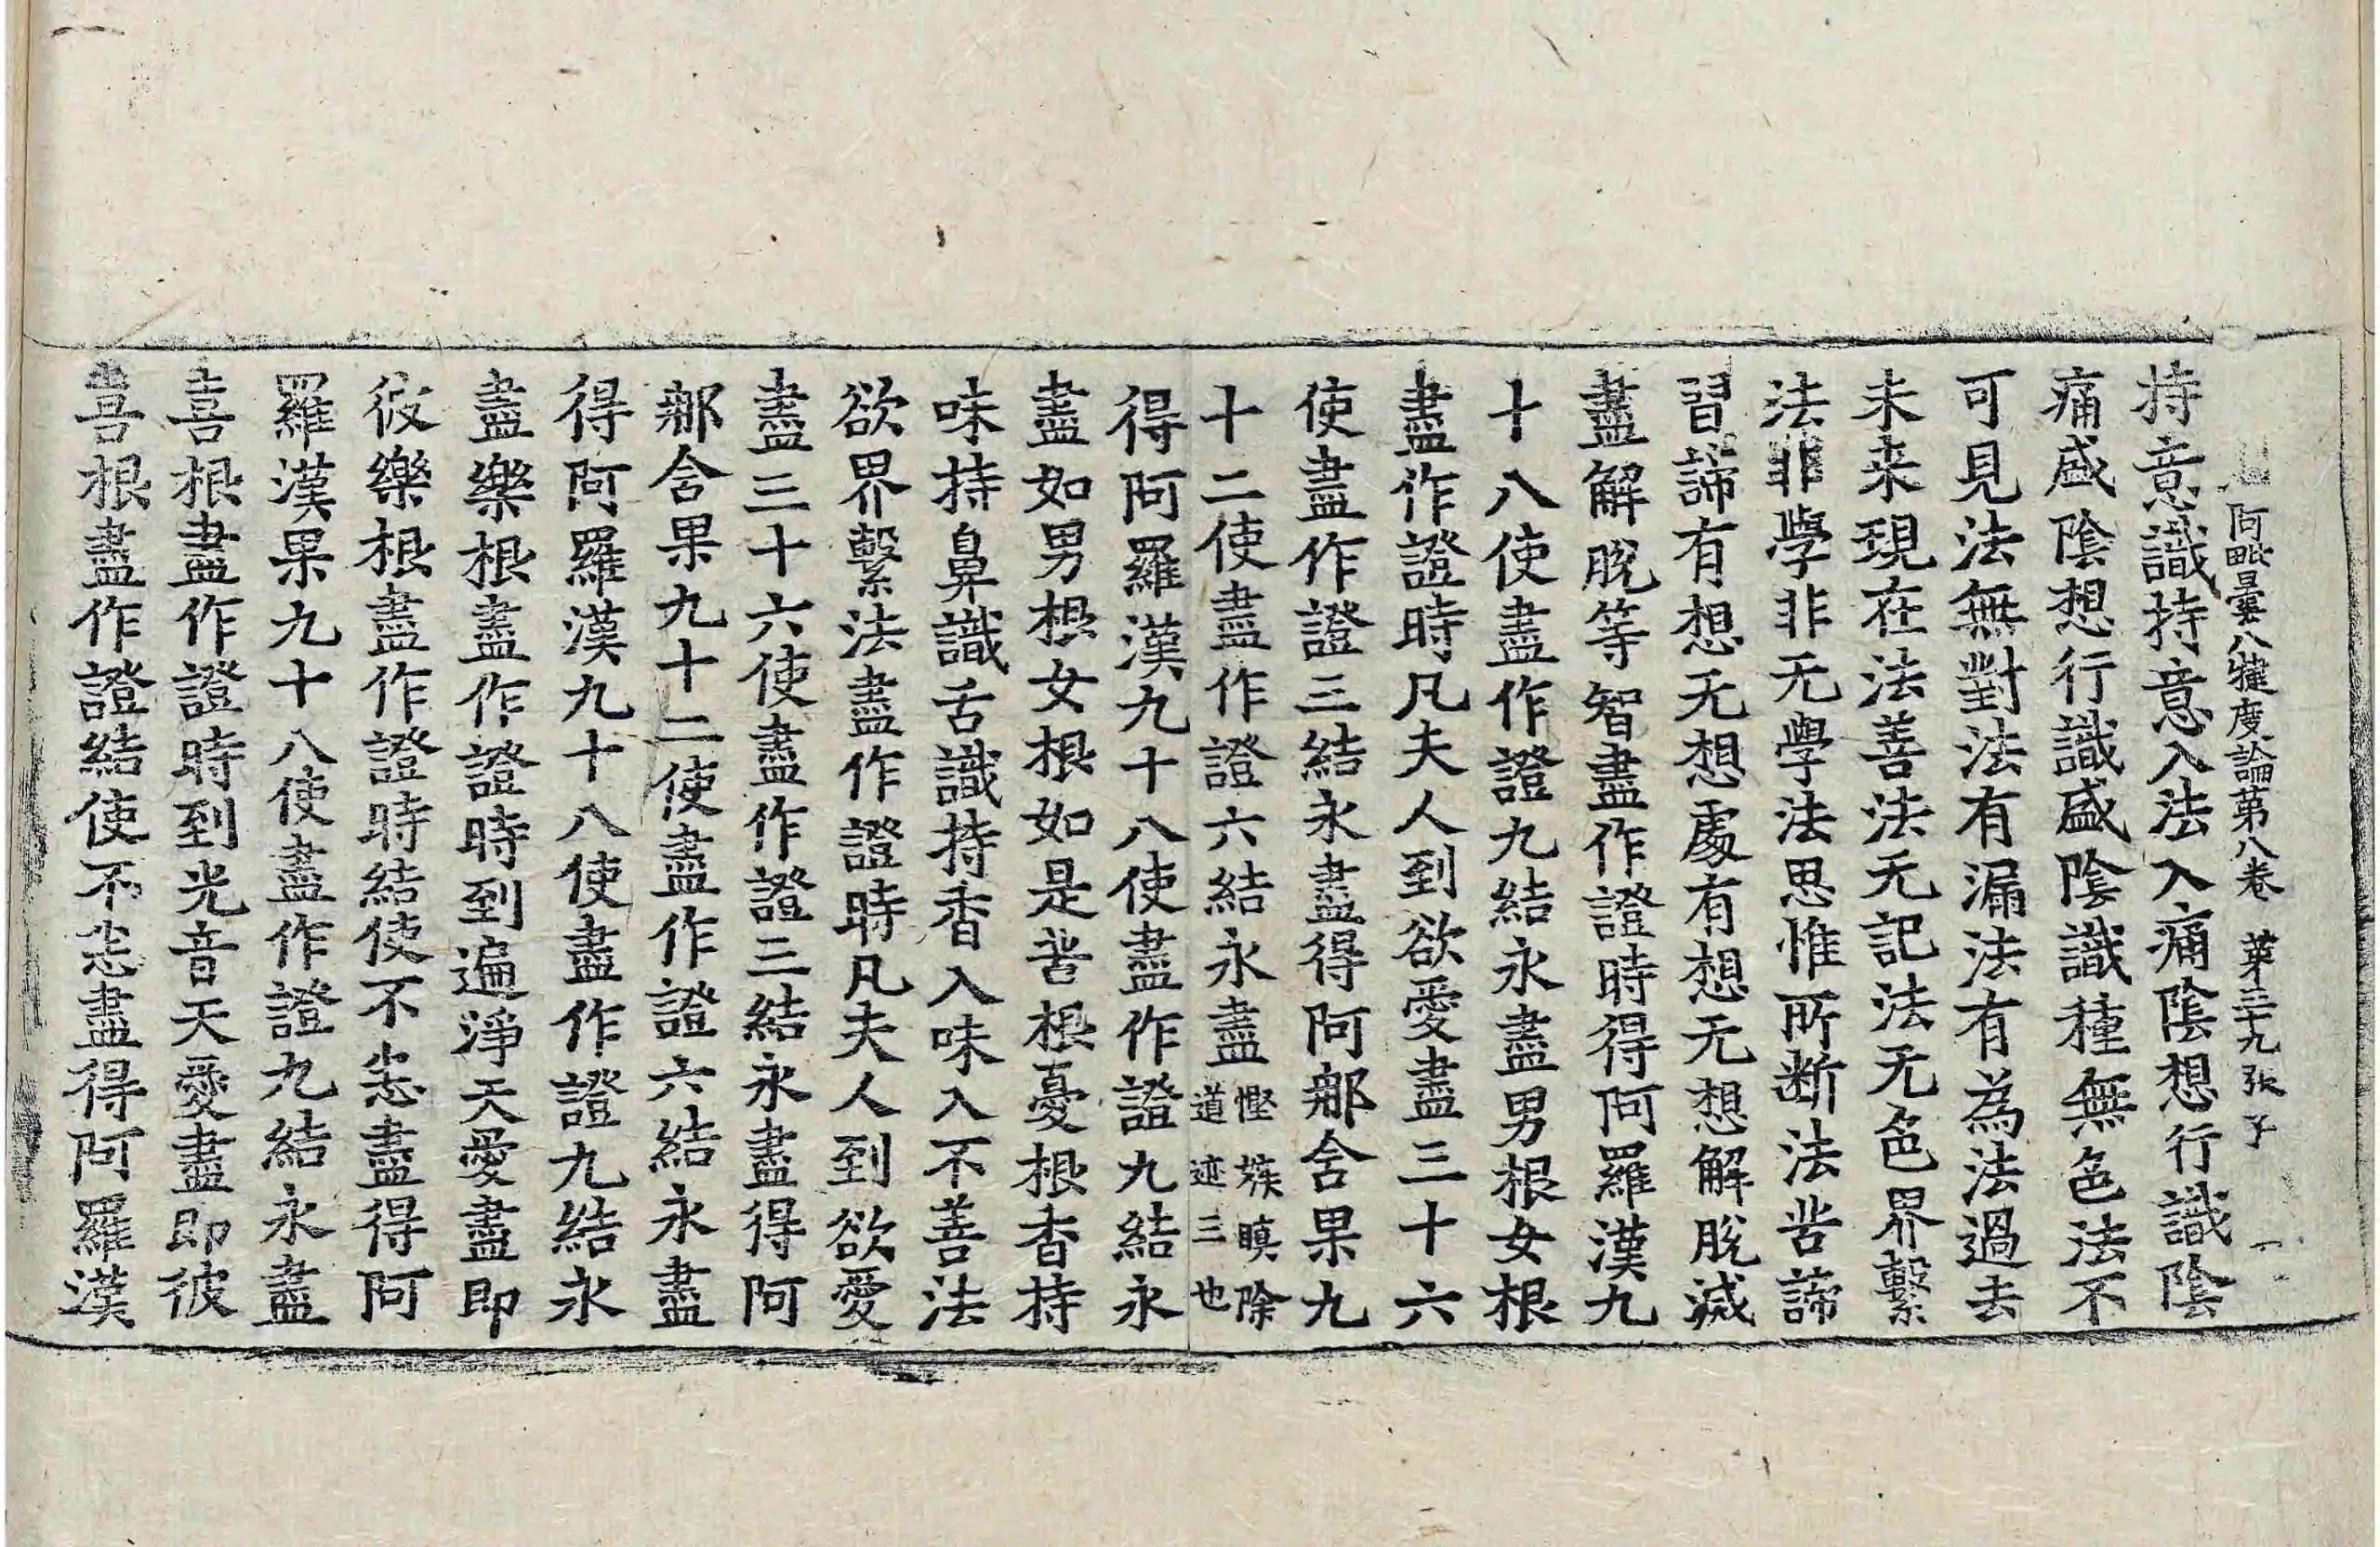 阿毗曇八犍度論第八卷 第三十九張 子
持意識持意入法入痛陰想行識陰
痛盛陰想行識盛陰識種無色法不
可見法無對法有漏法有為法過去
未来現在法善法无記法无色界繫
法非學非无學法思惟所断法苦諦
習諦有想无想處有想无想解脫滅
盡解脫等智盡作證時得阿羅漢九
十八使盡作證九結永盡男根女根
盡作證時凡夫人到欲愛盡三十六
使盡作證三結永盡得阿那含果九
十二使盡作證六結永盡慳嫉瞋除道迹三也
得阿羅漢九十八使盡作證九結永
盡如男根女根如是苦根憂根香持
味持鼻識舌識持香入味入不善法
欲界繫法盡作證時凡夫人到欲愛
盡三十六使盡作證三結永盡得阿
那含果九十二使盡作證六結永盡
得阿羅漢九十八使盡作證九結永
盡樂根盡作證時到遍淨天愛盡即
彼樂根盡作證時結使不恙盡得阿
羅漢果九十八使盡作證九結永盡
喜根盡作證時到光音天愛盡即彼
喜根盡作證結使不恙盡得阿羅漢